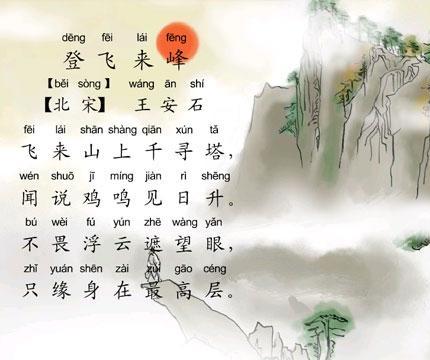 dēng fēi lái fēng
登飞来峰
【běi sòng】 wáng ān shí
【北宋】 王安石
fēi lái shān shàng qiān xún tǎ
飞来山上千寻塔，
wén shuō jī míng jiàn rì shēng
闻说鸡鸣见日升。
bú wèi fú yún zhē wàng yǎn
不畏浮云遮望眼，
zhǐ yuán shēn zài zuì gāo céng
只缘身在最高层。